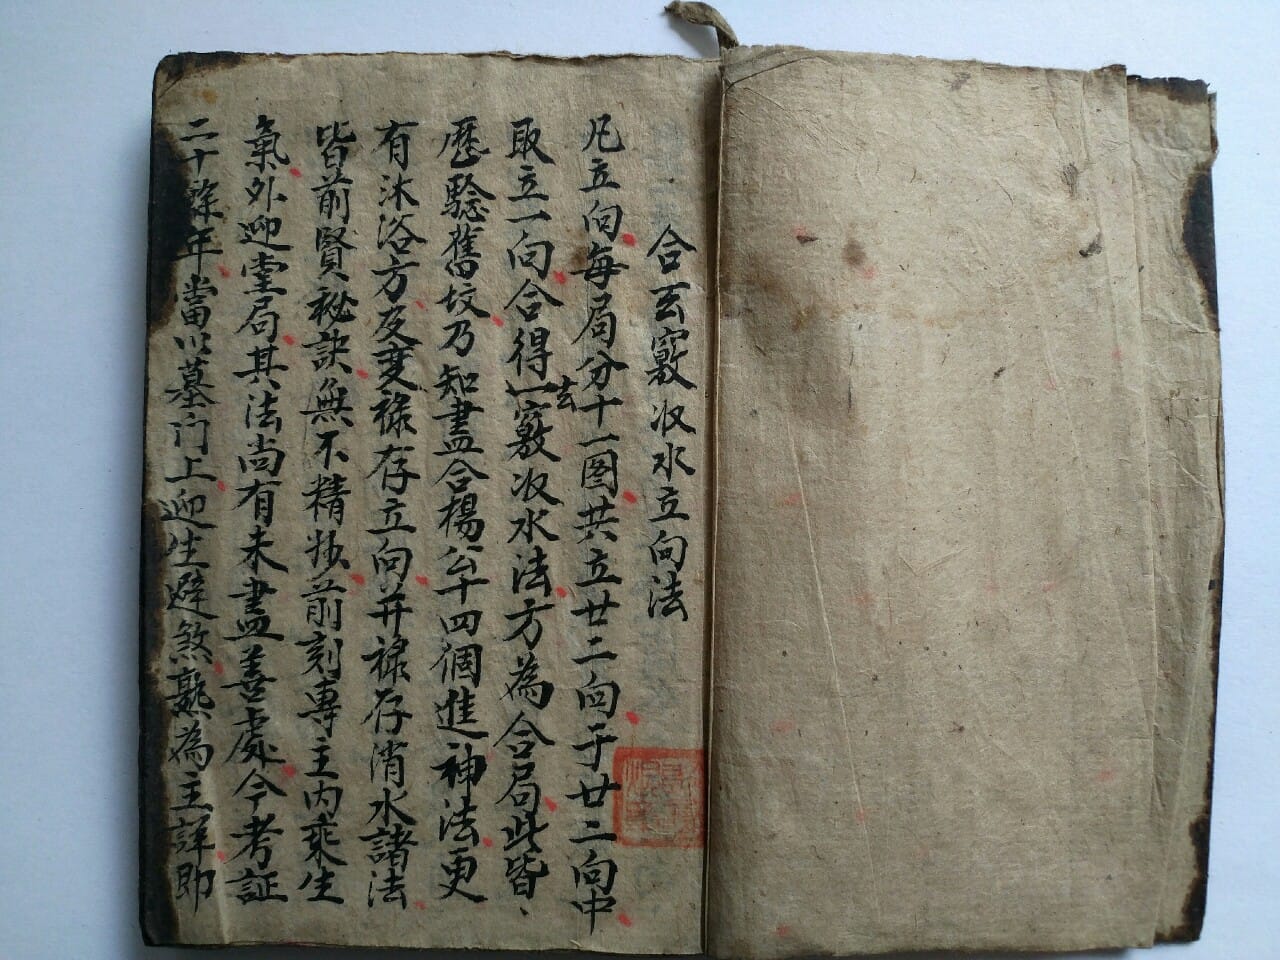 合玄竅收水立向法
凡立向每局分十一图共立廿二向于廿二向中
取立一向合得一玄竅收水法方為合局此皆、
歷驗舊坟乃知盡合楊公十四個進神法更
有沐浴方及雙祿存立向并祿存消水諸法
皆前賢秘訣無不精妙前刻専主内乘生
氣外迎堂局其法尚有未盡善處今考証
二十餘年當以墓门上迎生避煞為主詳即